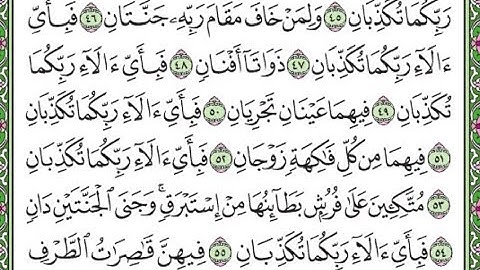 رَبِّكُمَا تُكَذِّبَانِ ٤٥ وَلِمَنْ خَافَ مَقَامَ رَبِّهِۦ جَنَّتَانِ ٤٦ فَبِأَيِّ
ءَالَآءِ رَبِّكُمَا تُكَذِّبَانِ ٤٧ ذَوَاتَآ أَفْنَانٍ ٤٨ فَبِأَيِّ ءَالَآءِ رَبِّكُمَا
تُكَذِّبَانِ ٤٩ فِيهِمَا عَيْنَانِ تَجْرِيَانِ ٥٠ فَبِأَيِّ ءَالَآءِ رَبِّكُمَا تُكَذِّبَانِ
٥١ فِيهِمَا مِن كُلِّ فَٰكِهَةٍ زَوْجَانِ ٥٢ فَبِأَيِّ ءَالَآءِ رَبِّكُمَا تُكَذِّبَانِ
٥٣ مُتَّكِـِٔينَ عَلَىٰ فُرُشٍۭ بَطَآئِنُهَا مِنْ إِسْتَبْرَقٍۚ وَجَنَى ٱلْجَنَّتَيْنِ دَانٍ
٥٤ فَبِأَيِّ ءَالَآءِ رَبِّكُمَا تُكَذِّبَانِ ٥٥ فِيهِنَّ قَٰصِرَٰتُ ٱلطَّرْفِ